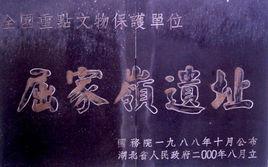 全國重點文物保護單位
屈家嶺遺址
國務院一九八八年十月公布
湖北省人民政府二000年八月立